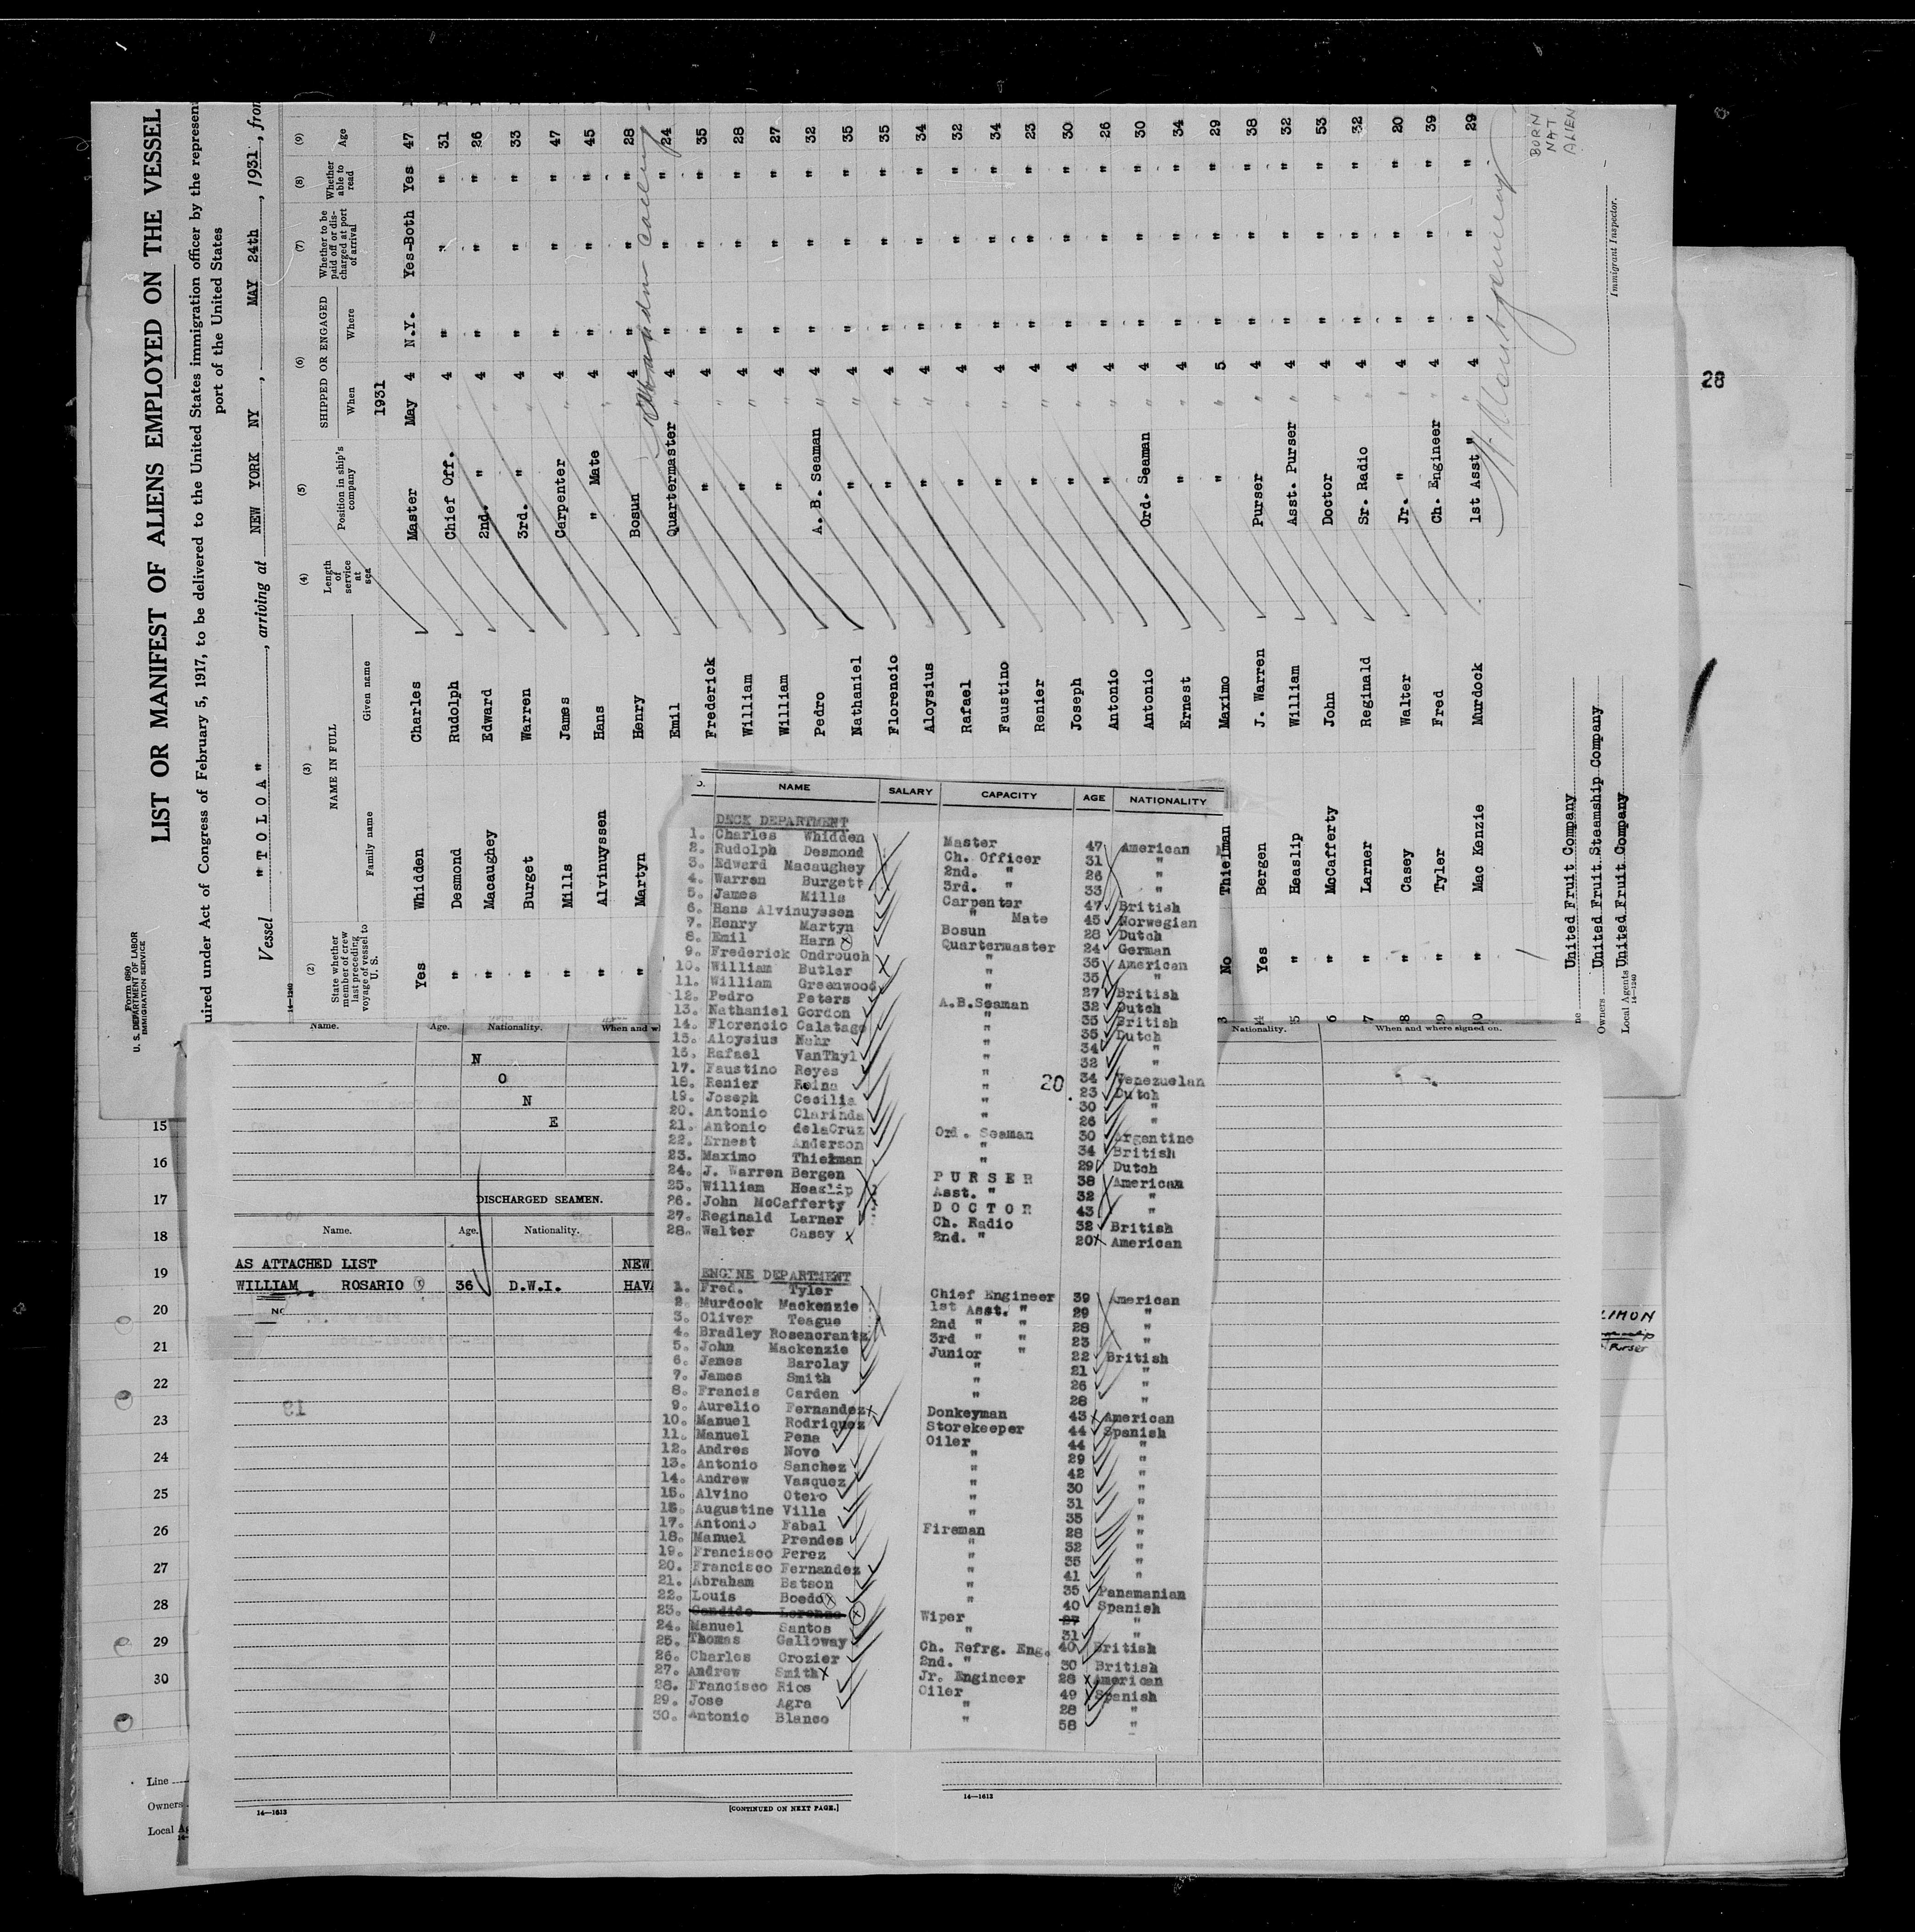 LIST OR MANIFEST OF ALIENS EMPLOYED ON THE VESSEL
Form 680
U. S. DEPARTMENT OF LABOR
IMMIGRATION SERVICE
uired under Act of Congress of February 5, 1917, to be delivered to the United States immigration officer by the represen
port of the United States
Vessel " T O L O A " , arriving at NEW YORK NY , MAY 24th , 1931 , from
14-1240
(2) (3) (4) (5) (6) (7) (8) (9)
State whether member of crew last preceding voyage of vessel to U. S.
NAME IN FULL
Family name Given name
Length of service at sea
Position in ship's company
SHIPPED OR ENGAGED
When Where
Whether to be paid off or discharged at port of arrival
Whether able to read
Age
1931
Yes Whidden Charles Master May 4 N.Y. Yes-Both Yes 47
" Desmond Rudolph Chief Off. " 4 " " " 31
" Macaughey Edward 2nd. " " 4 " " " 26
" Burget Warren 3rd. " " 4 " " " 33
" Mills James Carpenter " 4 " " " 47
" Alvinuyssen Hans " Mate " 4 " " " 45
" Martyn Henry Bosun 4 " " " 28
Emil Quartermaster " 4 " " " 24
Frederick " " 4 " " " 35
William " " 4 " " " 28
William " " 4 " " " 27
Pedro A. B. Seaman " 4 " " " 32
Nathaniel " " 4 " " " 35
Florencio " " 4 " " " 35
Aloysius " " 4 " " " 34
Rafael " " 4 " " " 32
Faustino " " 4 " " " 34
Renier " " 4 " " " 23
Joseph " " 4 " " " 30
Antonio " " 4 " " " 26
Antonio Ord. Seaman " 4 " " " 30
Ernest " " 4 " " " 34
3 No Thielman Maximo " " 5 " " " 29
4 Yes Bergen J. Warren Purser " 4 " " " 38
5 " Heaslip William Asst. Purser " 4 " " " 32
6 " McCafferty John Doctor " 4 " " " 53
7 " Larner Reginald Sr. Radio " 4 " " " 32
8 " Casey Walter Jr. " " 4 " " " 20
9 " Tyler Fred Ch. Engineer " 4 " " " 39
0 " Mac Kenzie Murdock 1st Asst " " 4 " " " 29
BORN
NAT
ALIEN
Immigrant Inspector.
ne United Fruit Company
Owners United Fruit Steamship Company
Local Agents United Fruit Company
14-1240
28
O. NAME SALARY CAPACITY AGE NATIONALITY
DECK DEPARTMENT
1. Charles Whidden Master 47 American
2. Rudolph Desmond Ch. Officer 31 "
3. Edward Macaughey 2nd. " 26 "
4. Warren Burgett 3rd. " 33 "
5. James Mills Carpenter 47 British
6. Hans Alvinuyssen " Mate 45 Norwegian
7. Henry Martyn Bosun 28 Dutch
8. Emil Harn Quartermaster 24 German
9. Frederick Ondrouch " 35 American
10. William Butler " 35 "
11. William Greenwood " 27 British
12. Pedro Peters A.B.Seaman 32 Dutch
13. Nathaniel Gordon " 35 British
14. Florencio Calatago " 35 Dutch
15. Aloysius Nahr " 34 "
16. Rafael VanThyl " 32 "
17. Faustino Reyes " 34 Venezuelan
18. Renier Reina " 23 Dutch
20
19. Joseph Cecilia " 30 "
20. Antonio Clarinda " 26 "
21. Antonio delaCruz Ord. Seaman 30 Argentine
22. Ernest Anderson " 34 British
23. Maximo Thielman " 29 Dutch
24. J. Warren Bergen P U R S E R 38 American
25. William Heaslip Asst. " 32 "
26. John McCafferty D O C T O R 43 "
27. Reginald Larner Ch. Radio 32 British
28. Walter Casey 2nd. " 20 American
ENGINE DEPARTMENT
1. Fred. Tyler Chief Engineer 39 American
2. Murdock Mackenzie 1st Asst. " 29 "
3. Oliver Teague 2nd " " 28 "
4. Bradley Rosencrantz 3rd " " 23 "
5. John Mackenzie Junior " 22 British
6. James Barclay " 21 "
7. James Smith " 26 "
8. Francis Carden " 28 "
9. Aurelio Fernandez Donkeyman 43 American
10. Manuel Rodriquez Storekeeper 44 Spanish
11. Manuel Pena Oiler 44 "
12. Andres Novo " 29 "
13. Antonio Sanchez " 42 "
14. Andrew Vasquez " 30 "
15. Alvino Otero " 31 "
16. Augustine Villa " 35 "
17. Antonio Fabal Fireman 28 "
18. Manuel Prendes " 32 "
19. Francisco Perez " 35 "
20. Francisco Fernandez " 41 "
21. Abraham Batson " 35 Panamanian
22. Louis Boedo " 40 Spanish
23. Candido Lorenzo Wiper 27 "
24. Manuel Santos " 31 "
25. Thomas Galloway Ch. Refrg. Eng. 40 British
26. Charles Crozier 2nd. " 30 British
27. Andrew Smith Jr. Engineer 28 American
28. Francisco Rios Oiler 49 Spanish
29. Jose Agra " 28 "
30. Antonio Blanco " 58 "
Name. Age. Nationality. When and wh
N
O
N
E
DISCHARGED SEAMEN.
Name. Age. Nationality.
AS ATTACHED LIST NEW
WILLIAM ROSARIO 36 D.W.I. HAVA
14-1613
[CONTINUED ON NEXT PAGE.]
Nationality. When and where signed on.
14-1613
15
16
17
18
19
20
21
22
23
24
25
26
27
28
29
30
Line
Owners
Local Ag
LIMON
Purser